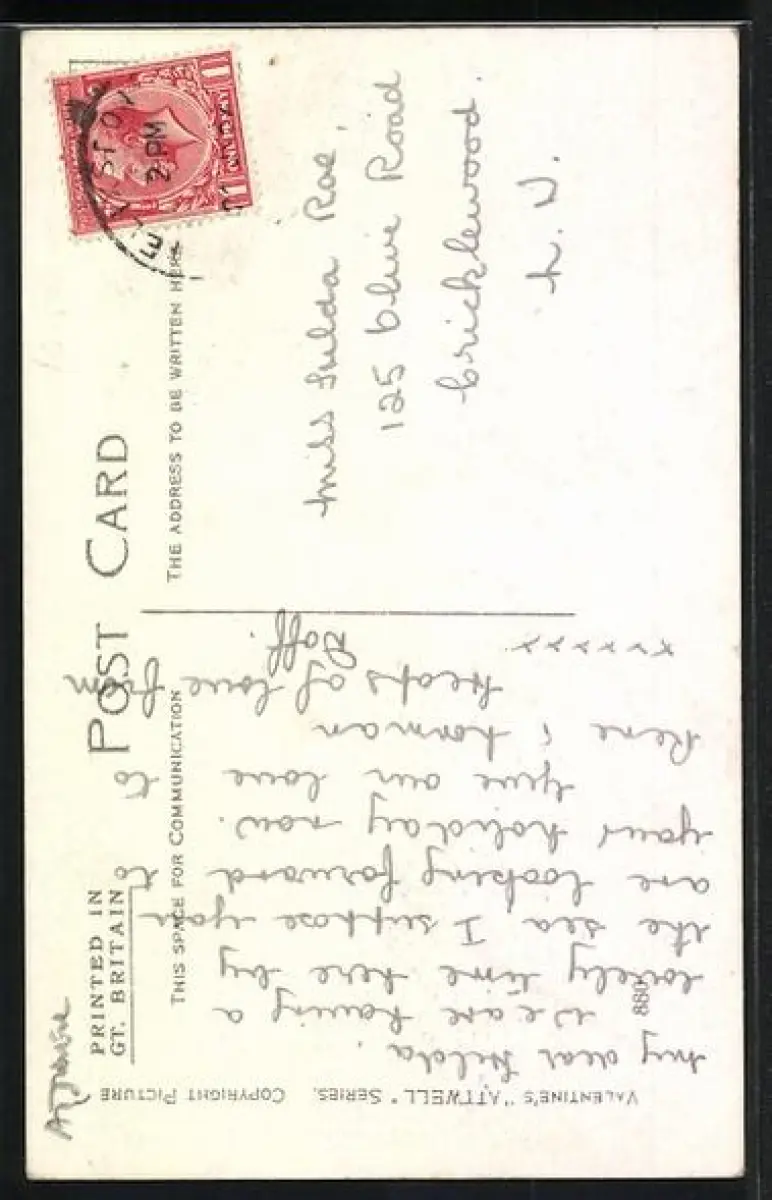 POST CARD
PRINTED IN
GT. BRITAIN
THIS SPACE FOR COMMUNICATION
THE ADDRESS TO BE WRITTEN HERE
VALENTINE'S "ATTWELL" SERIES. COPYRIGHT PICTURE
880
my dear Hilda.
we are having a
lovely time here by
the sea I suppose you
are looking forward to
your holiday now.
give our love to
Rene & Norman
heaps of love from
xxxxxx
Miss Hulda Rae,
125 Olive Road
Cricklewood.
N. W.
ONE PENNY
2 PM